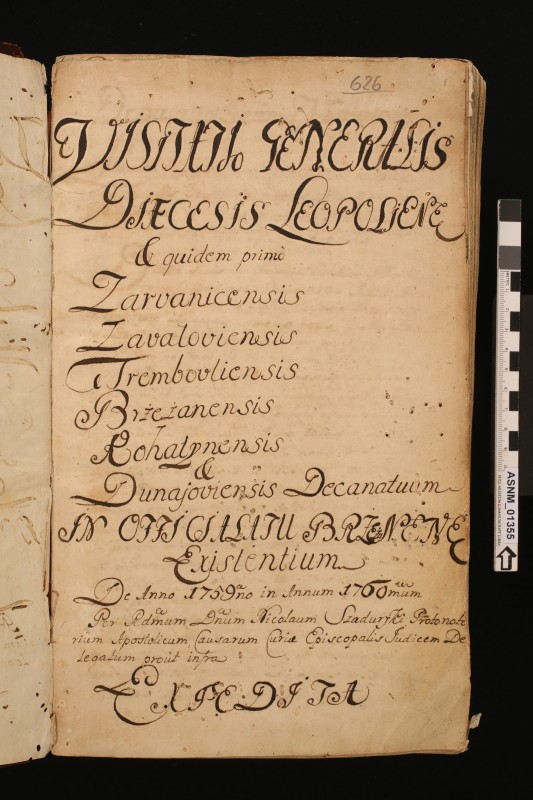 626
VISITATIO GENERALIS
DIÆCESIS LEOPOLIENE
& quidem primò
Zarvanicensis
Zavaloviensis
Trembovliensis
Brzeżanensis
Rohatynensis
&
Dunajoviensis Decanatuum
IN OFFICIALATU BRZEŻENE
Existentium
De Anno 1758no in Annum 1760mum
Per Rdmum Dnum Nicolaum Szadurski Protonota
rium Apostolicum Causarum Curiæ Episcopalis Iudicem De
legatum prout infra
EXPEDITA
ASNM_01355